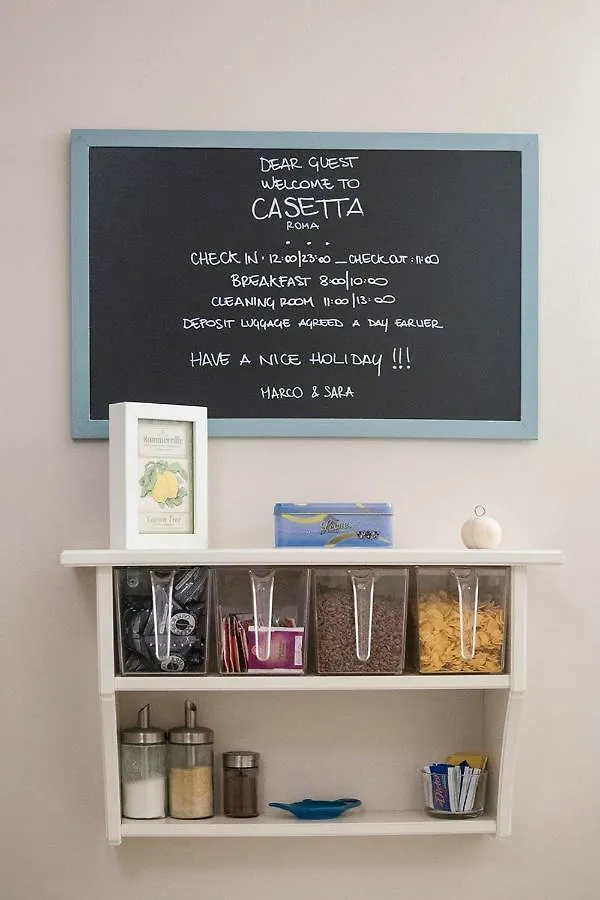 DEAR GUEST
WELCOME TO
CASETTA
ROMA
...
CHECK IN · 12:00/23:00 _ CHECK OUT : 11:00
BREAKFAST 8:00/10:00
CLEANING ROOM 11:00/13:00
DEPOSIT LUGGAGE AGREED A DAY EARLIER
HAVE A NICE HOLIDAY !!!
MARCO & SARA
Lemon Tree